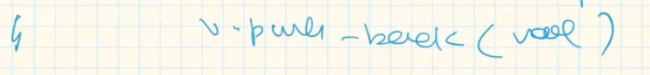 } v.push_back(val)